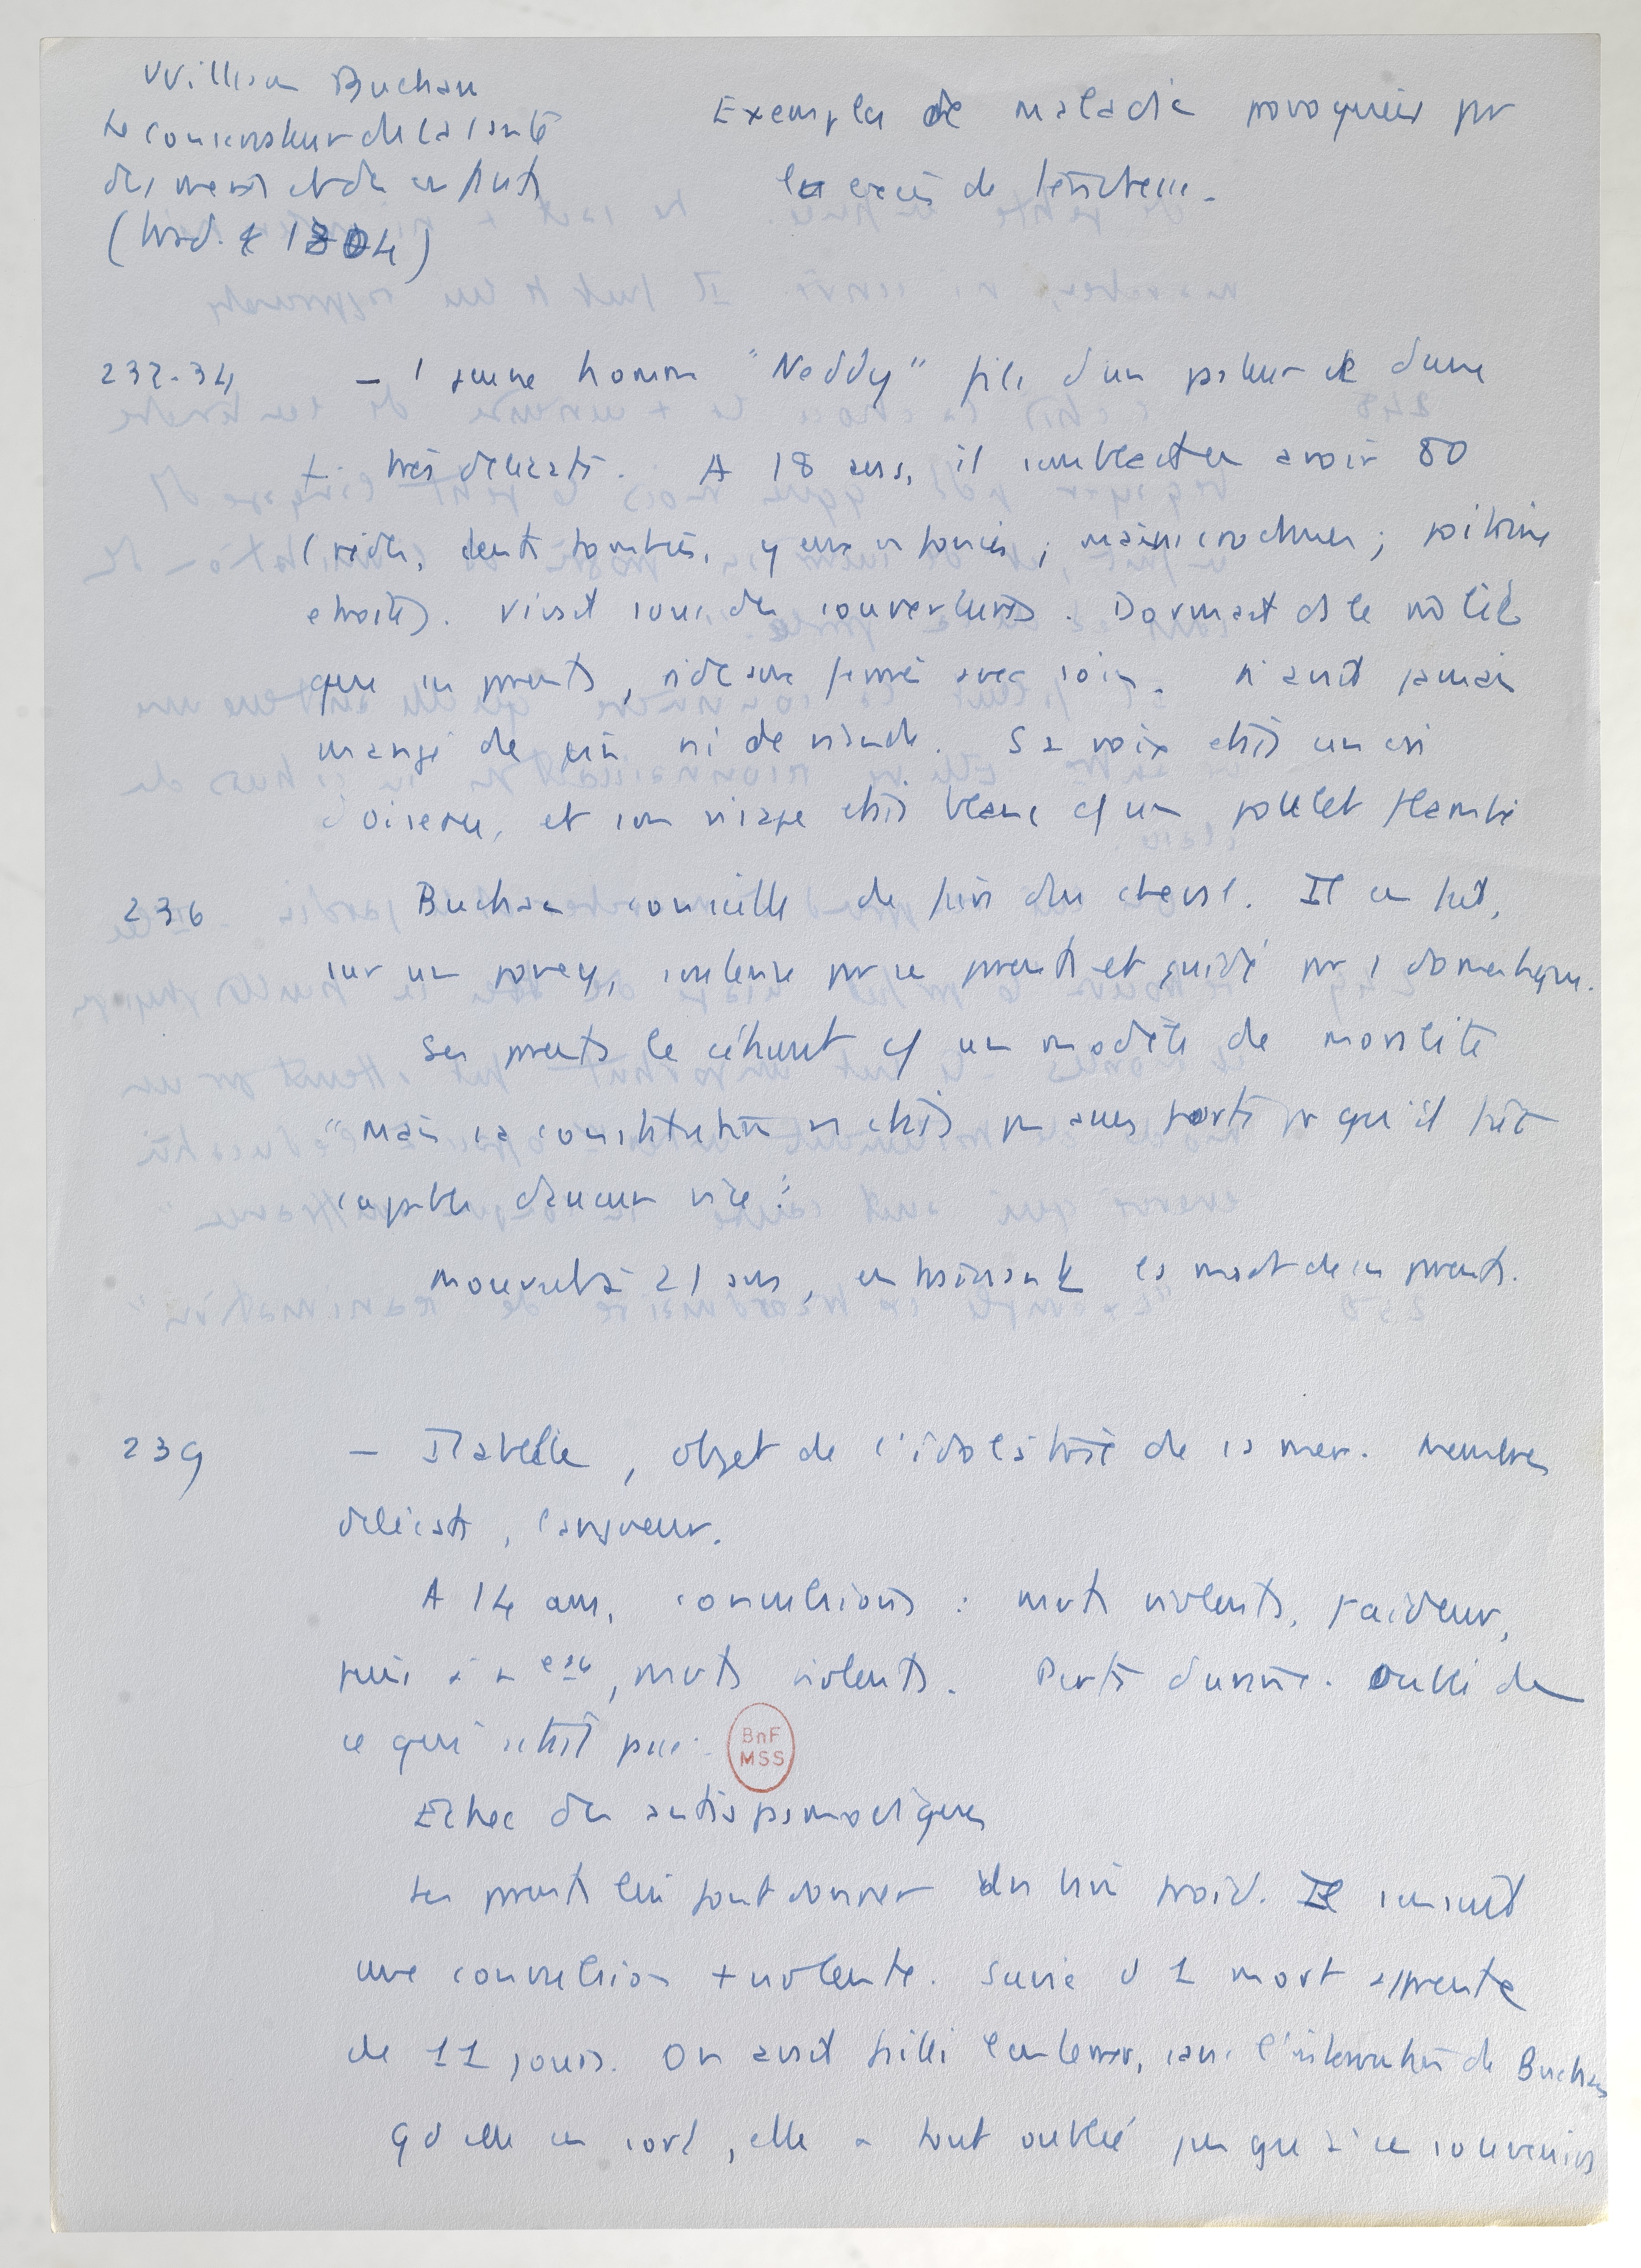 William Buchan
Le conservateur de la santé
des mères et des enfants
(trad. 1804)
Exemples de maladies provoquées par
les excès de tendresse.
232-34 – 1 jeune homme "Neddy" fils d'un pasteur et d'une
f. très délicats. A 18 ans, il semblait en avoir 80
(rides, dents tombées, yeux enfoncés; mains crochues; poitrine
étroite). Vivait sous des couvertures. Dormait ds le m̂ lit
que ses parents, rideaux fermés avec soin. N'avait jamais
mangé de ni de viande. Sa voix était un cri
d'oiseau, et son visage était blanc cf un poulet flambé
236 Buchan conseille de faire du cheval. Il en fait,
sur un poney, soutenu par ses parents et guidé par 1 domestique.
Ses parents le citent cf un modèle de moralité
"Mais sa constitution n'était pas assez forte pr qu'il fût
capable d'aucun vice".
Mourut à 21 ans, en la mort de ses parents.
239 – Isabelle, objet de l'idolâtrie de sa mère. Membres
délicats, langueur.
A 14 ans, convulsions : mvts violents, raideur,
puis à n, mvts violents. Perte d'urine. Oubli de
ce qui s'était passé.
Echec des antispasmodiques
Les parents lui font donner un bain froid. Il s'ensuit
une convulsion + violente. Suivie d 1 mort apparente
de 11 jours. On avait failli l'enterrer, sans l'intervention de Buchan
Qd elle en sort, elle a tout oublié jusqu'à ce souvenir
BnF
MSS